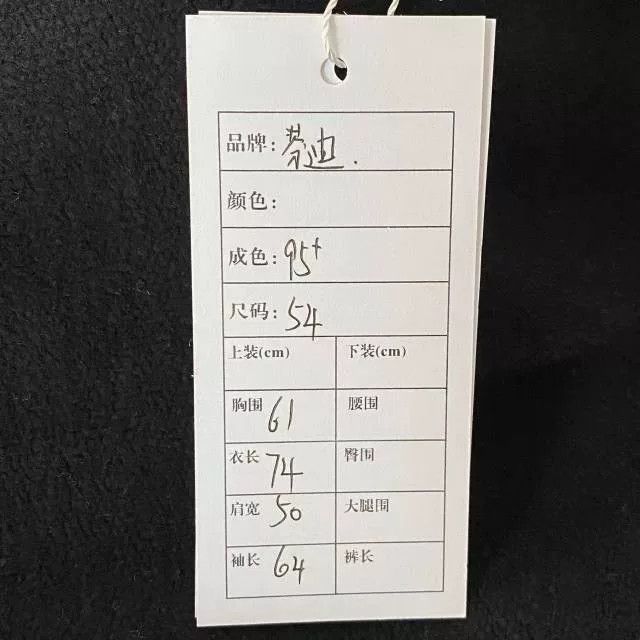 品牌: 芬迪.
颜色:
成色: 95+
尺码: 54
上装(cm) 下装(cm)
胸围 61 腰围
衣长 74 臀围
肩宽 50 大腿围
袖长 64 裤长